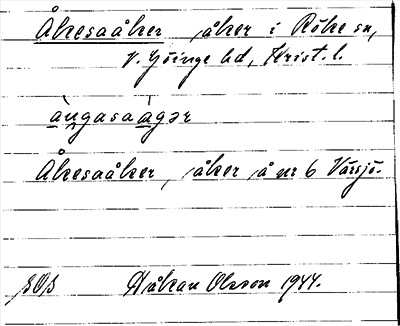 Åkesaåker, åker i Röke sn,
V. Göinge hd, Krist. l.
Åkesaåker, åker å nr 6 Värsjö.
Håkan Olsson 1944.